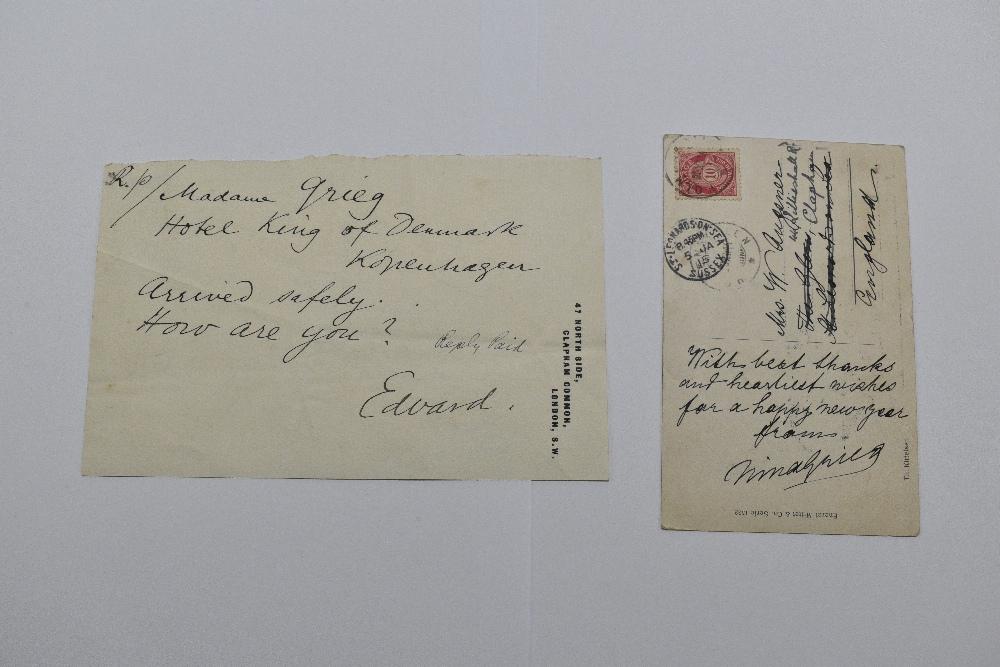 R.p/ Madame Grieg
Hotel King of Denmark
Kopenhagen
Arrived safely.
How are you?
Reply Paid
Edvard.
47 NORTH SIDE,
CLAPHAM COMMON,
LONDON, S.W.
10
ST. LEONARDS-ON-SEA
8.45PM
5 JA
15
SUSSEX
Mrs. W. Augener
Clapham
England
With best thanks
and heartiest wishes
for a happy new year
from
Nina Grieg
Eneret Mittet & Co. Serie
Th. Kittelsen